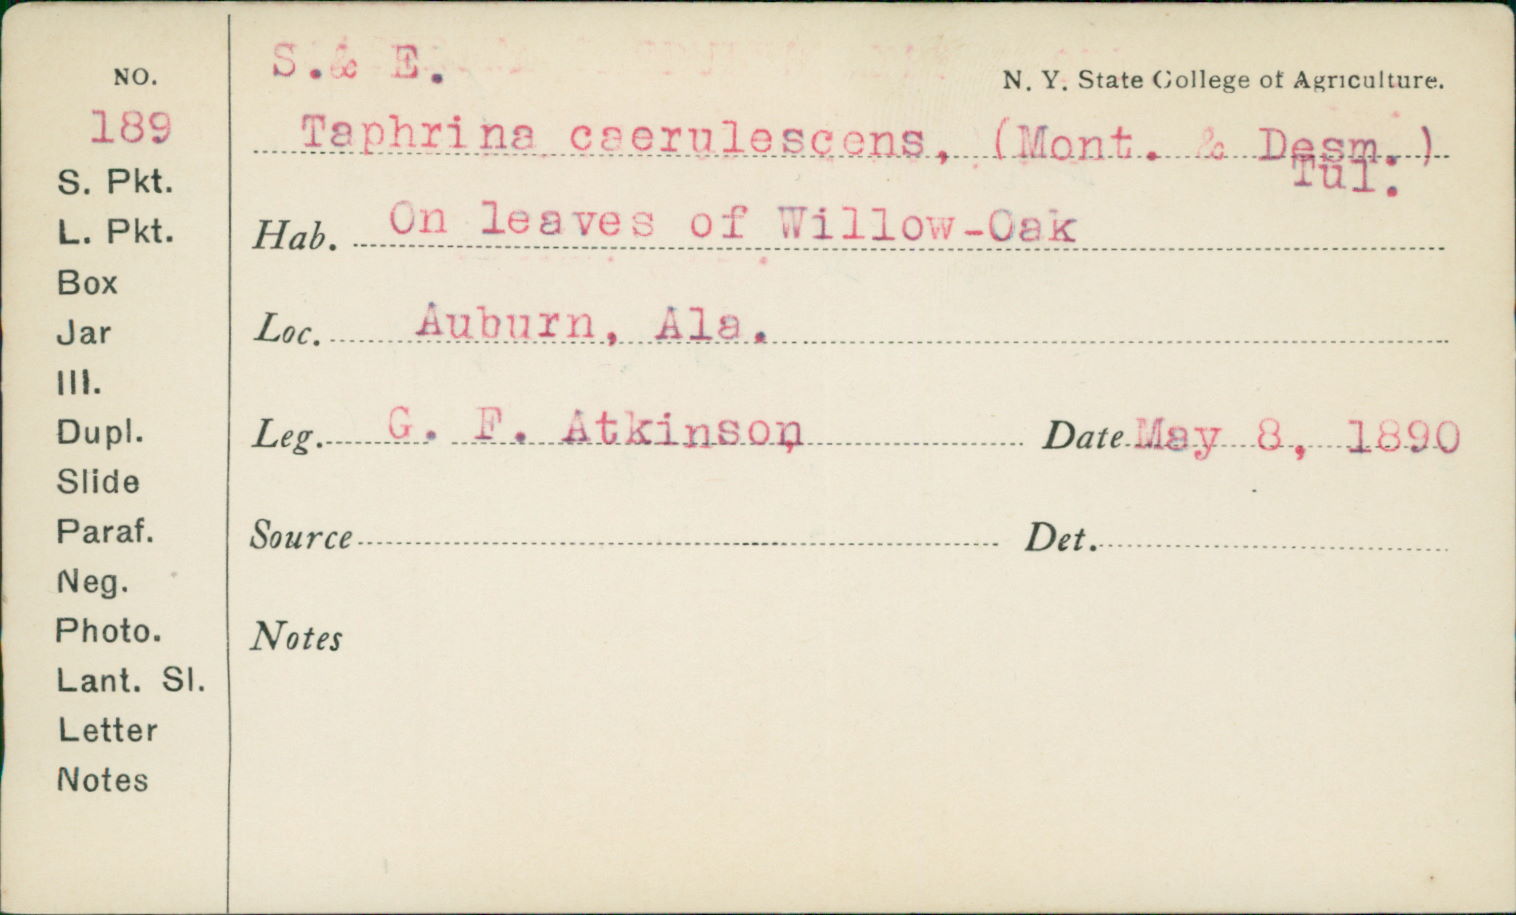 NO.
189
S. Pkt.
L. Pkt.
Box
Jar
Ill.
Dupl.
Slide
Paraf.
Neg.
Photo.
Lant. Sl.
Letter
Notes
S.& E.
N. Y. State College of Agriculture.
Taphrina caerulescens, (Mont. & Desm.)
Tul.
Hab. On leaves of Willow-Oak
Loc. Auburn, Ala.
Leg. G. F. Atkinson, Date May 8, 1890
Source Det.
Notes